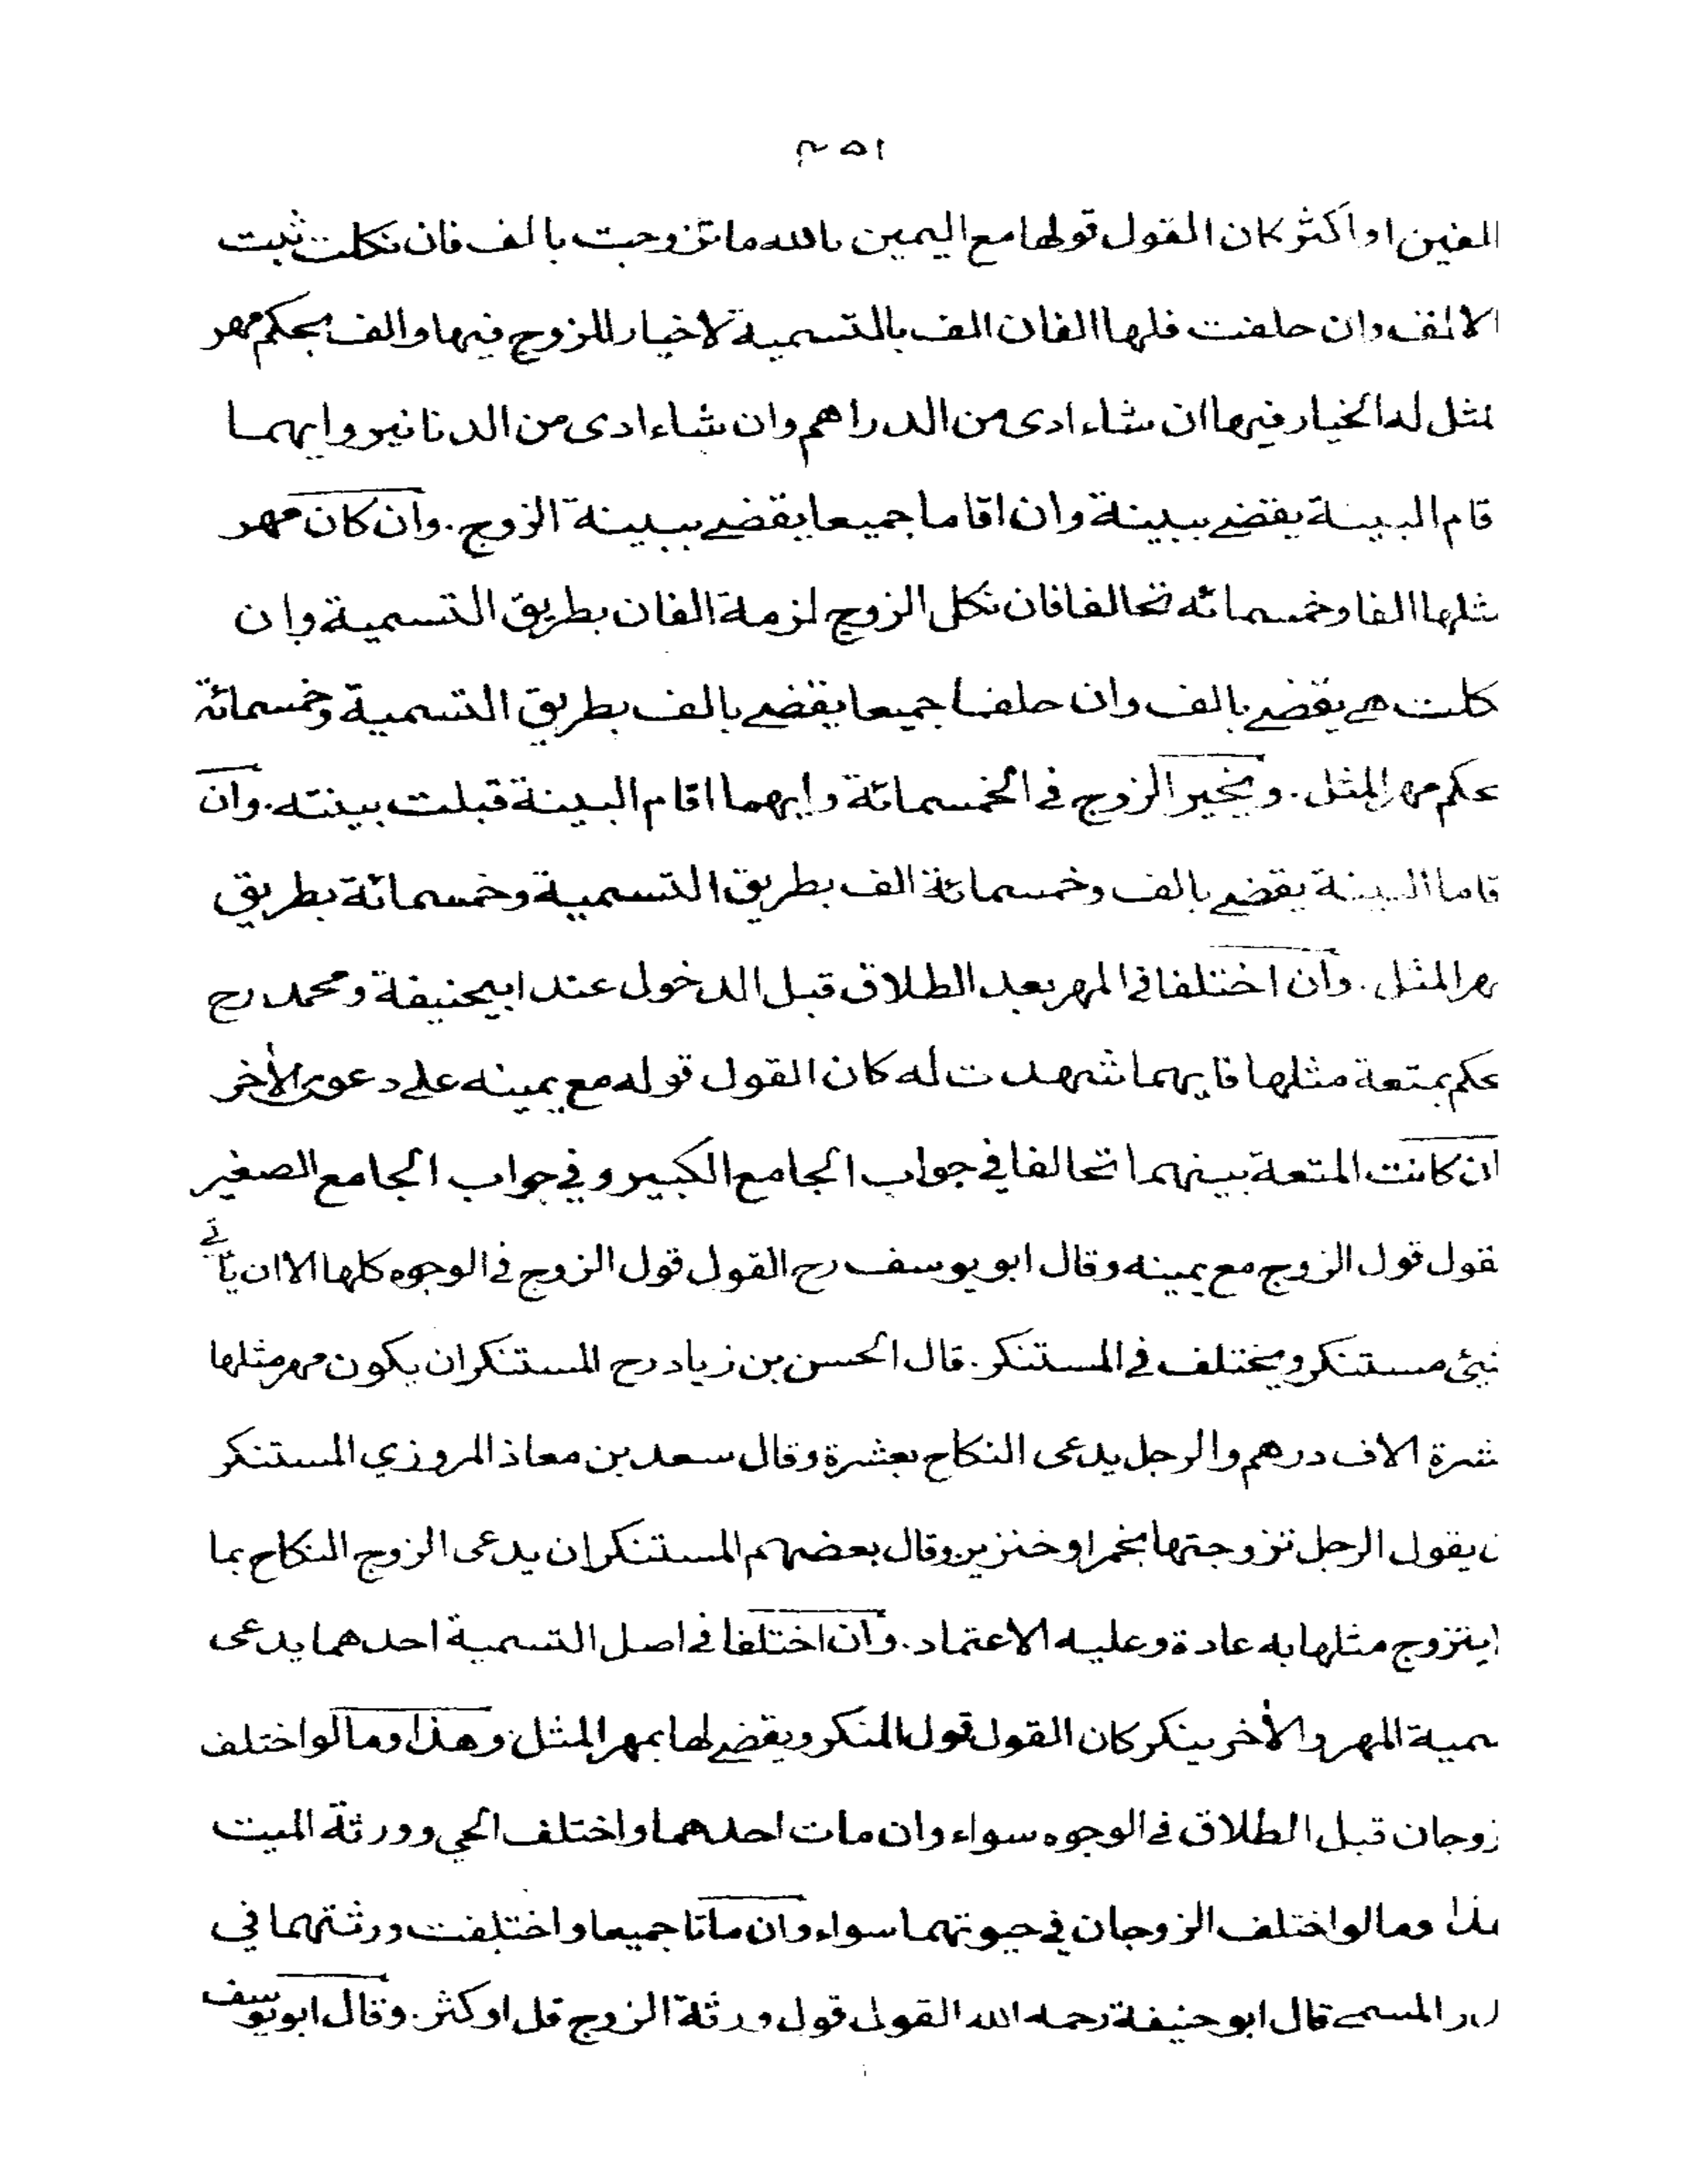 ٤٥١
الفين او اكثر كان القول قولها مع اليمين بالله ما تزوجت بالف فان نكلت ثبت
الالف وان حلفت فلها الفان الف بالتسمية لا خيار للزوج فيها والف بحكم مهر
لمثل له الخيار فيها ان شاء ادى من الدراهم وان شاء ادى من الدنانير وايهما
قام البينة يقضے ببينة وان اقاما جميعا يقضے ببينة الزوج . وان كان مهر
مثلها الفا وخمسمائه تحالفا فان نكل الزوج لزمة الفان بطريق التسمية وان
كلت هے يقضے بالف وان حلفا جميعا يقضے بالف بطريق التسمية وخمسمائة
حكم مهر المثل . ويخير الزوج فے الخمسمائة وايهما اقام البينة قبلت بينته . وان
قاما البينة يقضے بالف وخمسمائة الف بطريق التسمية وخمسمائة بطريق
مهر المثل . وان اختلفا فے المهر بعد الطلاق قبل الدخول عند ابيحنيفة ومحمد رح
حكم بمتعة مثلها فايهما شهدت له كان القول قوله مع يمينه علے دعوى الأخر
ان كانت المتعة بينهما تحالفا في جواب الجامع الكبير وفي جواب الجامع الصغير
لقول قول الزوج مع يمينه وقال ابو يوسف رح القول قول الزوج فے الوجوه كلها الا ان يأتے
شئ مستنكر ويختلف فے المستنكر . قال الحسن بن زياد رح المستنكر ان يكون مهر مثلها
شرة الاف درهم والرجل يدعى النكاح بعشرة وقال سعد بن معاذ المروزي المستنكر
ن يقول الرجل تزوجتها بخمر او خنزير وقال بعضهم المستنكر ان يدعى الزوج النكاح بما
ا يتزوج مثلها به عادة وعليه الاعتماد . وان اختلفا فے اصل التسمية احدهما يدعى
سمية المهر والأخر ينكر كان القول قول المنكر ويقضے لها بمهر المثل وهذا وما لو اختلف
زوجان قبل الطلاق فے الوجوه سواء وان مات احدهما واختلف الحي وورثة الميت
هذا وما لو اختلف الزوجان في حيوتهما سواء وان ماتا جميعا واختلفت ورثتهما في
المسمے قال ابو حنيفة رحمه الله القول قول ورثة الزوج قل او كثر . وقال ابو يوسف